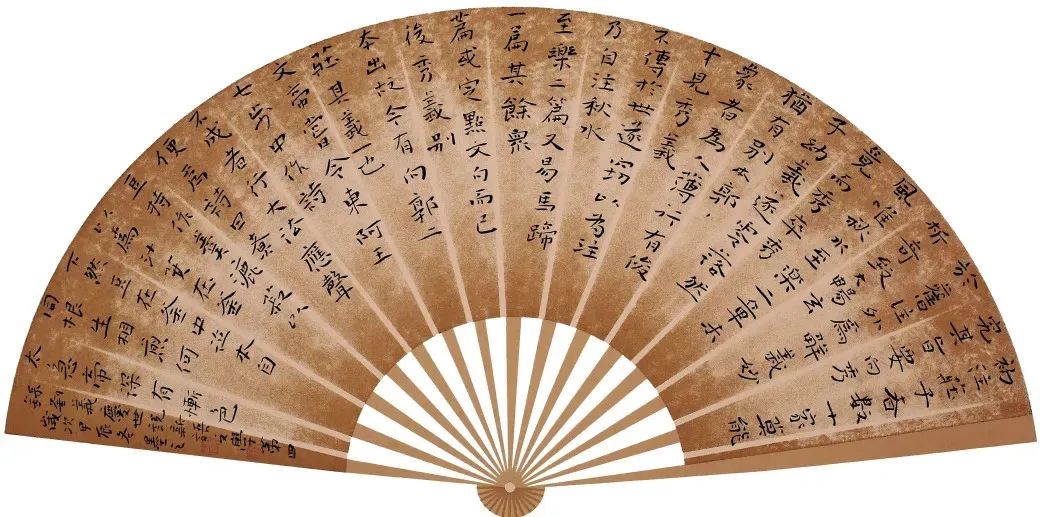 初注莊子者數十家莫能
究其旨要向秀
於舊注外為解義妙
析奇致大暢玄
風唯秋水至樂二篇未
竟而秀卒秀
子幼義遂零落然
猶有別本郭
象者為人薄行有俊
才見秀義
不傳於世遂竊以為注
乃自注秋水
至樂二篇又易馬蹄
一篇其餘衆
篇或定點文句而已
後秀義別
本出故今有向郭二
莊其義一也
文帝嘗令東阿王
七步中作詩
不成者行大法應聲
便為詩曰煮
豆持作羹漉菽
以為汁萁在釜
下然豆在釜中泣本自
同根生相煎何
太急帝深有慚色
錄劉義慶世說新語文學第四
歲次甲辰冬